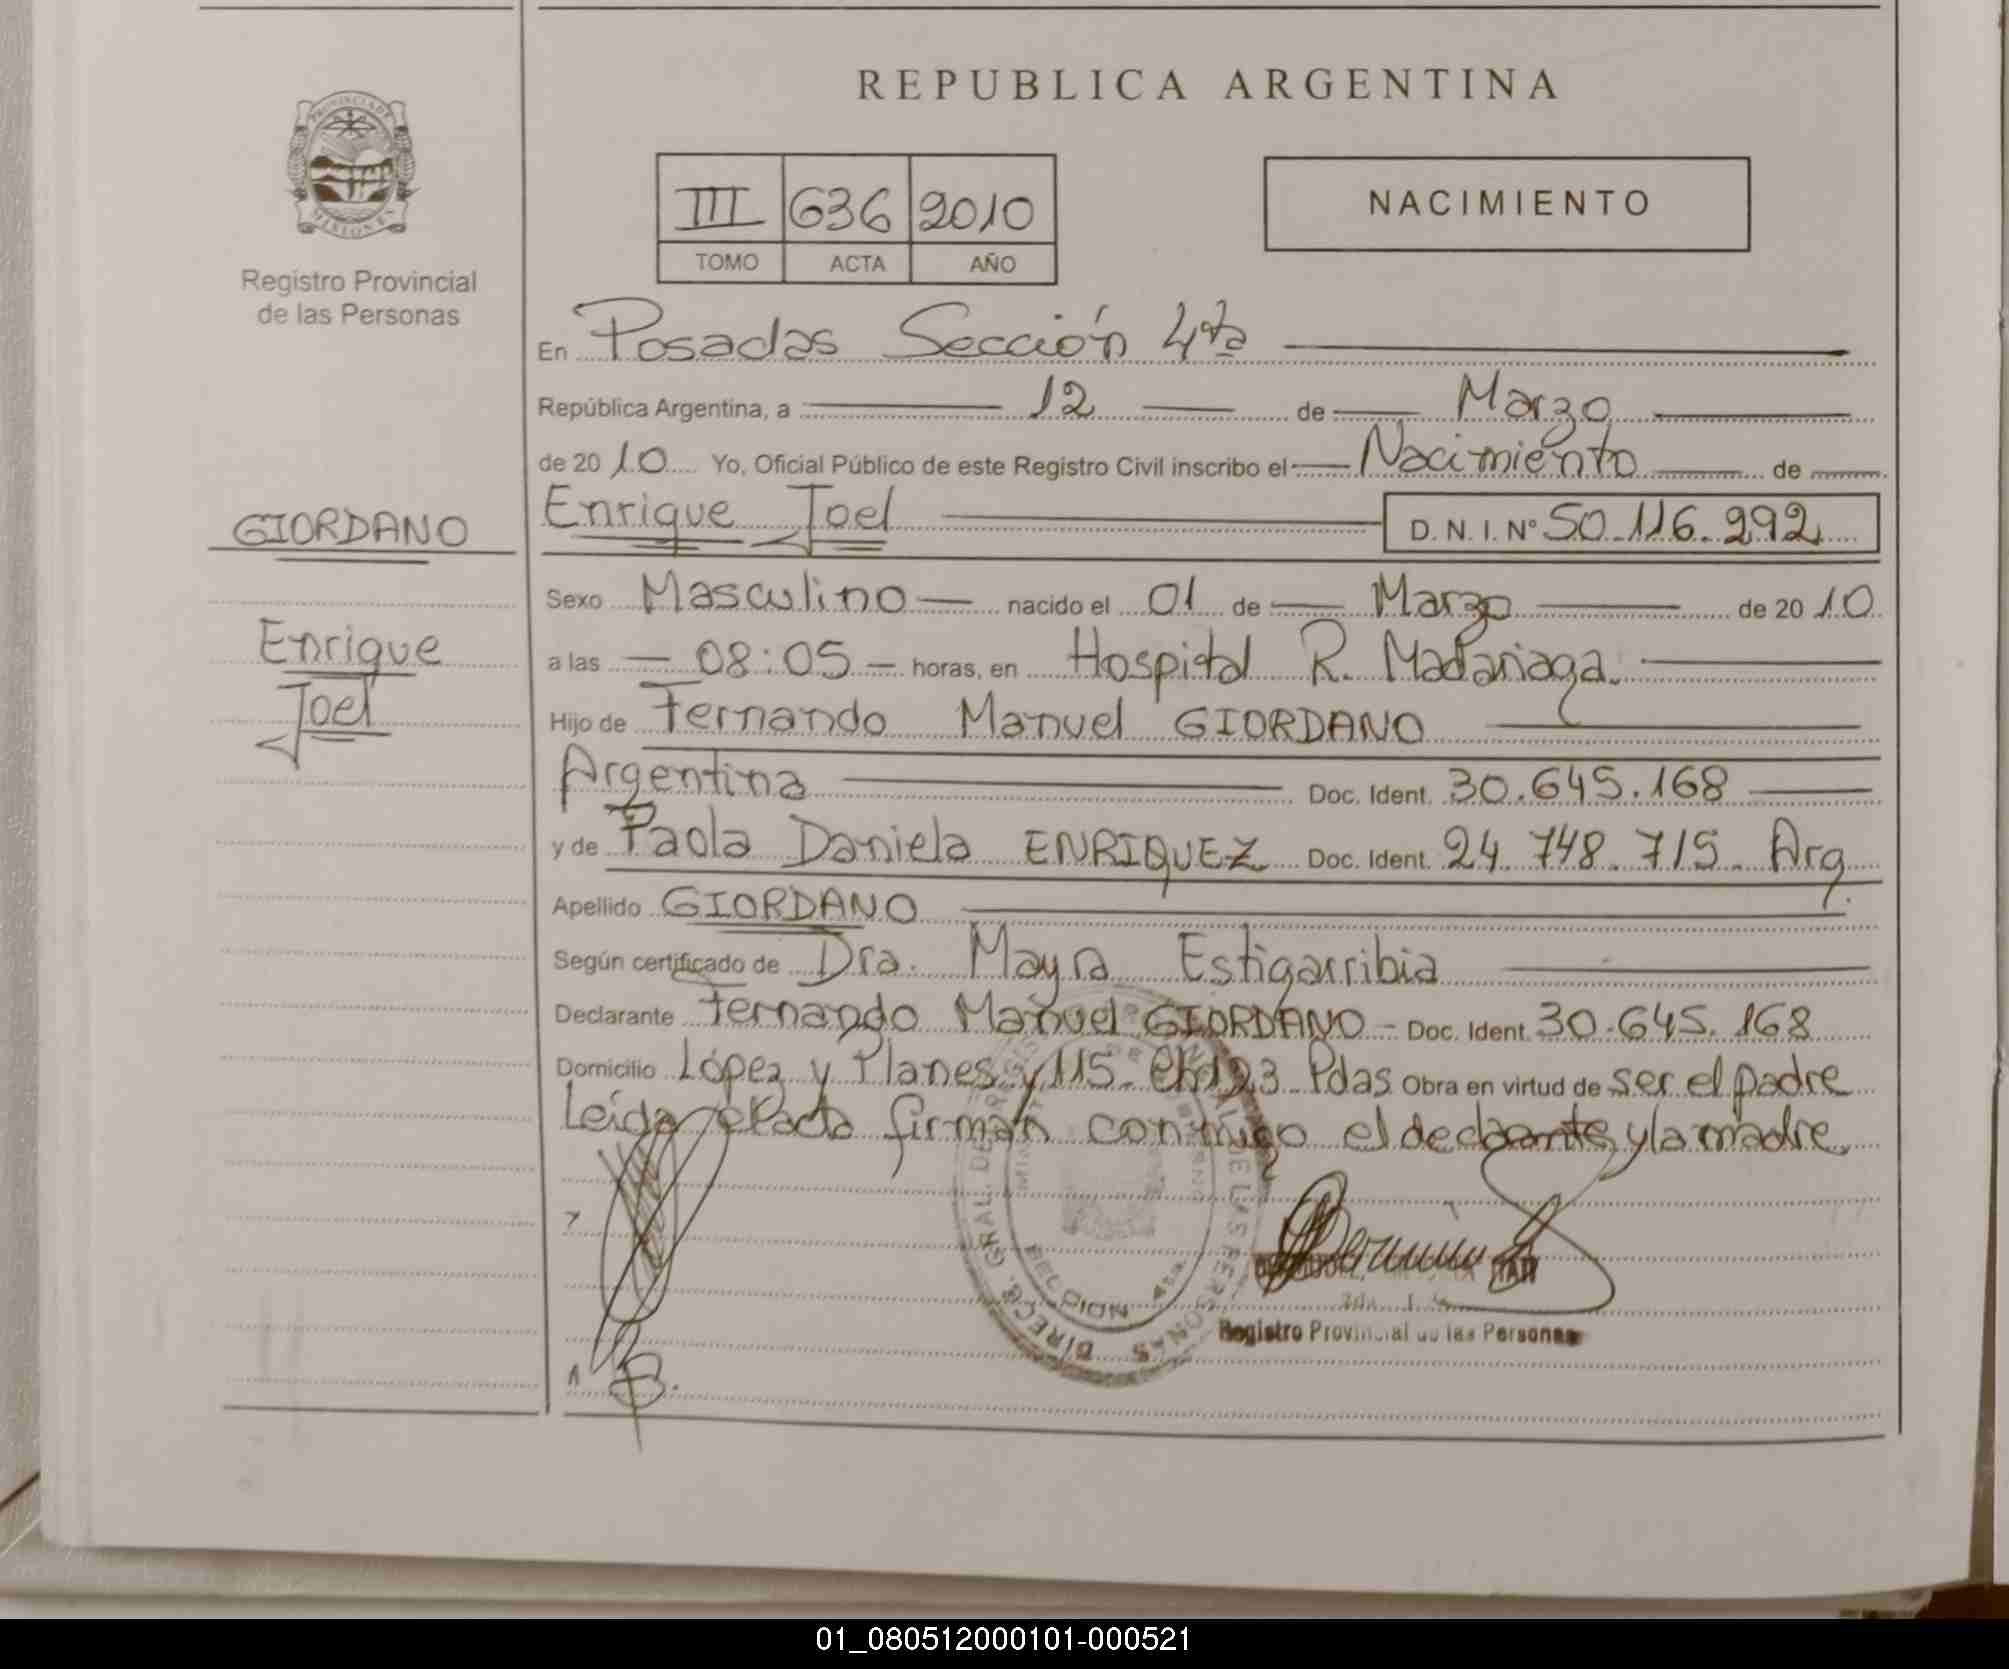 REPUBLICA ARGENTINA
PROVINCIA DE MISIONES
Registro Provincial
de las Personas
III 636 2010
TOMO ACTA AÑO
NACIMIENTO
En Posadas Sección 4ta
República Argentina, a 12 de Marzo
de 2010 Yo, Oficial Público de este Registro Civil inscribo el Nacimiento de
GIORDANO
Enrique Joel D. N. I. Nº 50.116.292
Sexo Masculino nacido el 01 de Marzo de 2010
Enrique
Joel
a las 08:05 horas, en Hospital R. Madariaga.
Hijo de Fernando Manuel GIORDANO
Argentina Doc. Ident. 30.645.168
y de Paola Daniela ENRIQUEZ Doc. Ident. 24.748.715. Arg.
Apellido GIORDANO
Según certificado de Dra. Mayra Estigarribia
Declarante Fernando Manuel GIORDANO - Doc. Ident. 30.645.168
Domicilio López y Planes y 115. Ch 123 Pdas Obra en virtud de ser el padre
Leída el acta firman conmigo el declarante y la madre
DIRECC. GRAL. DE REGISTRO PROVINCIAL DE LAS PERSONAS
Registro Provincial de las Personas
01_080512000101-000521